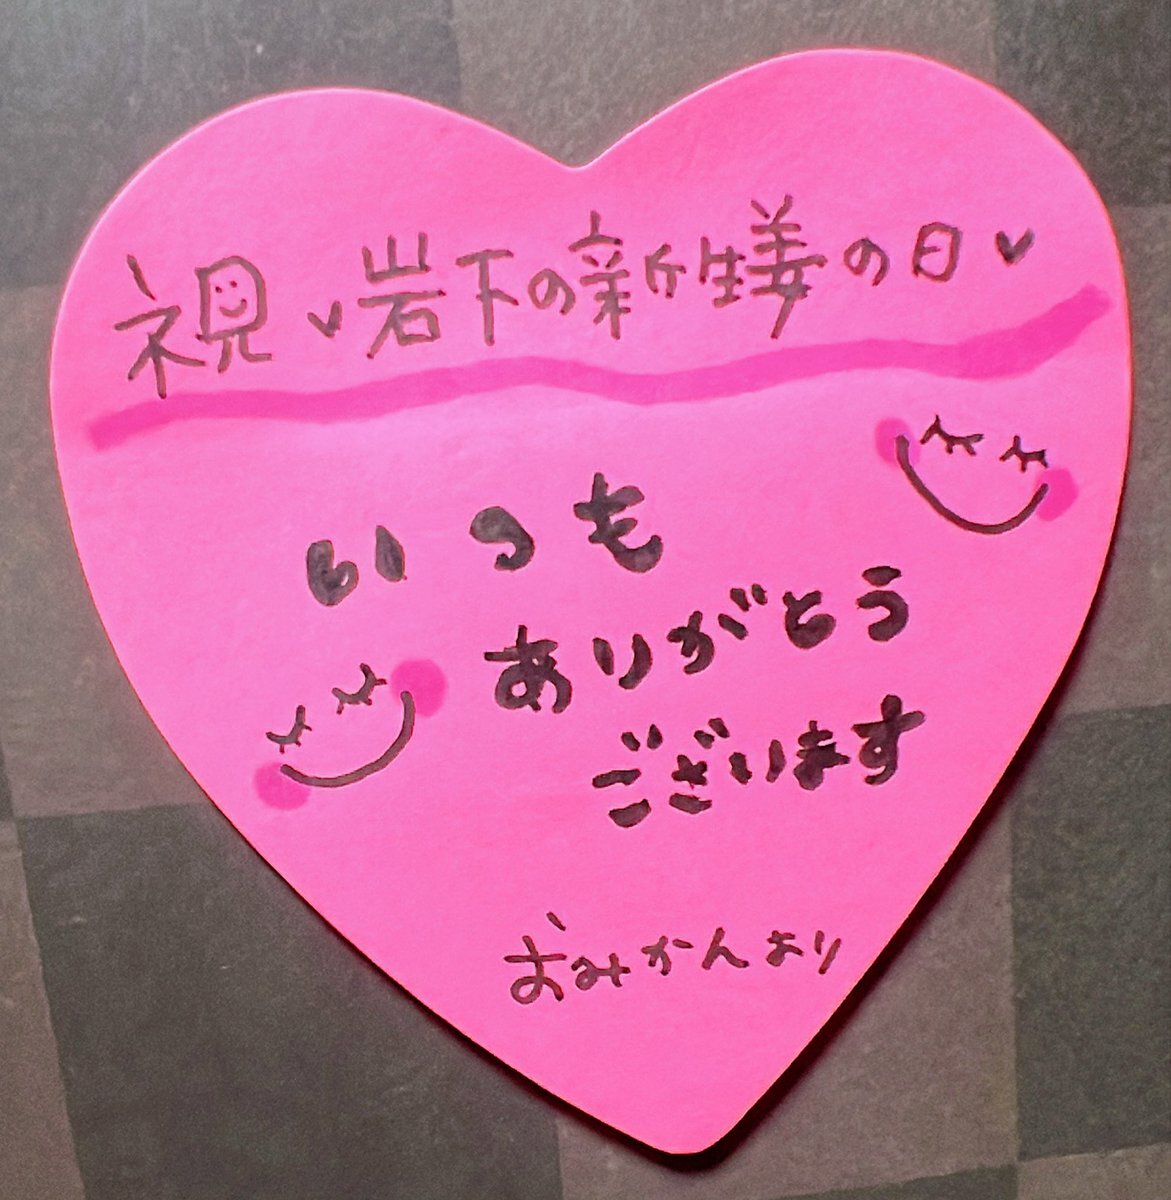 祝♥岩下の新生姜の日♥
いつも
ありがとう
ございます
おみかんより